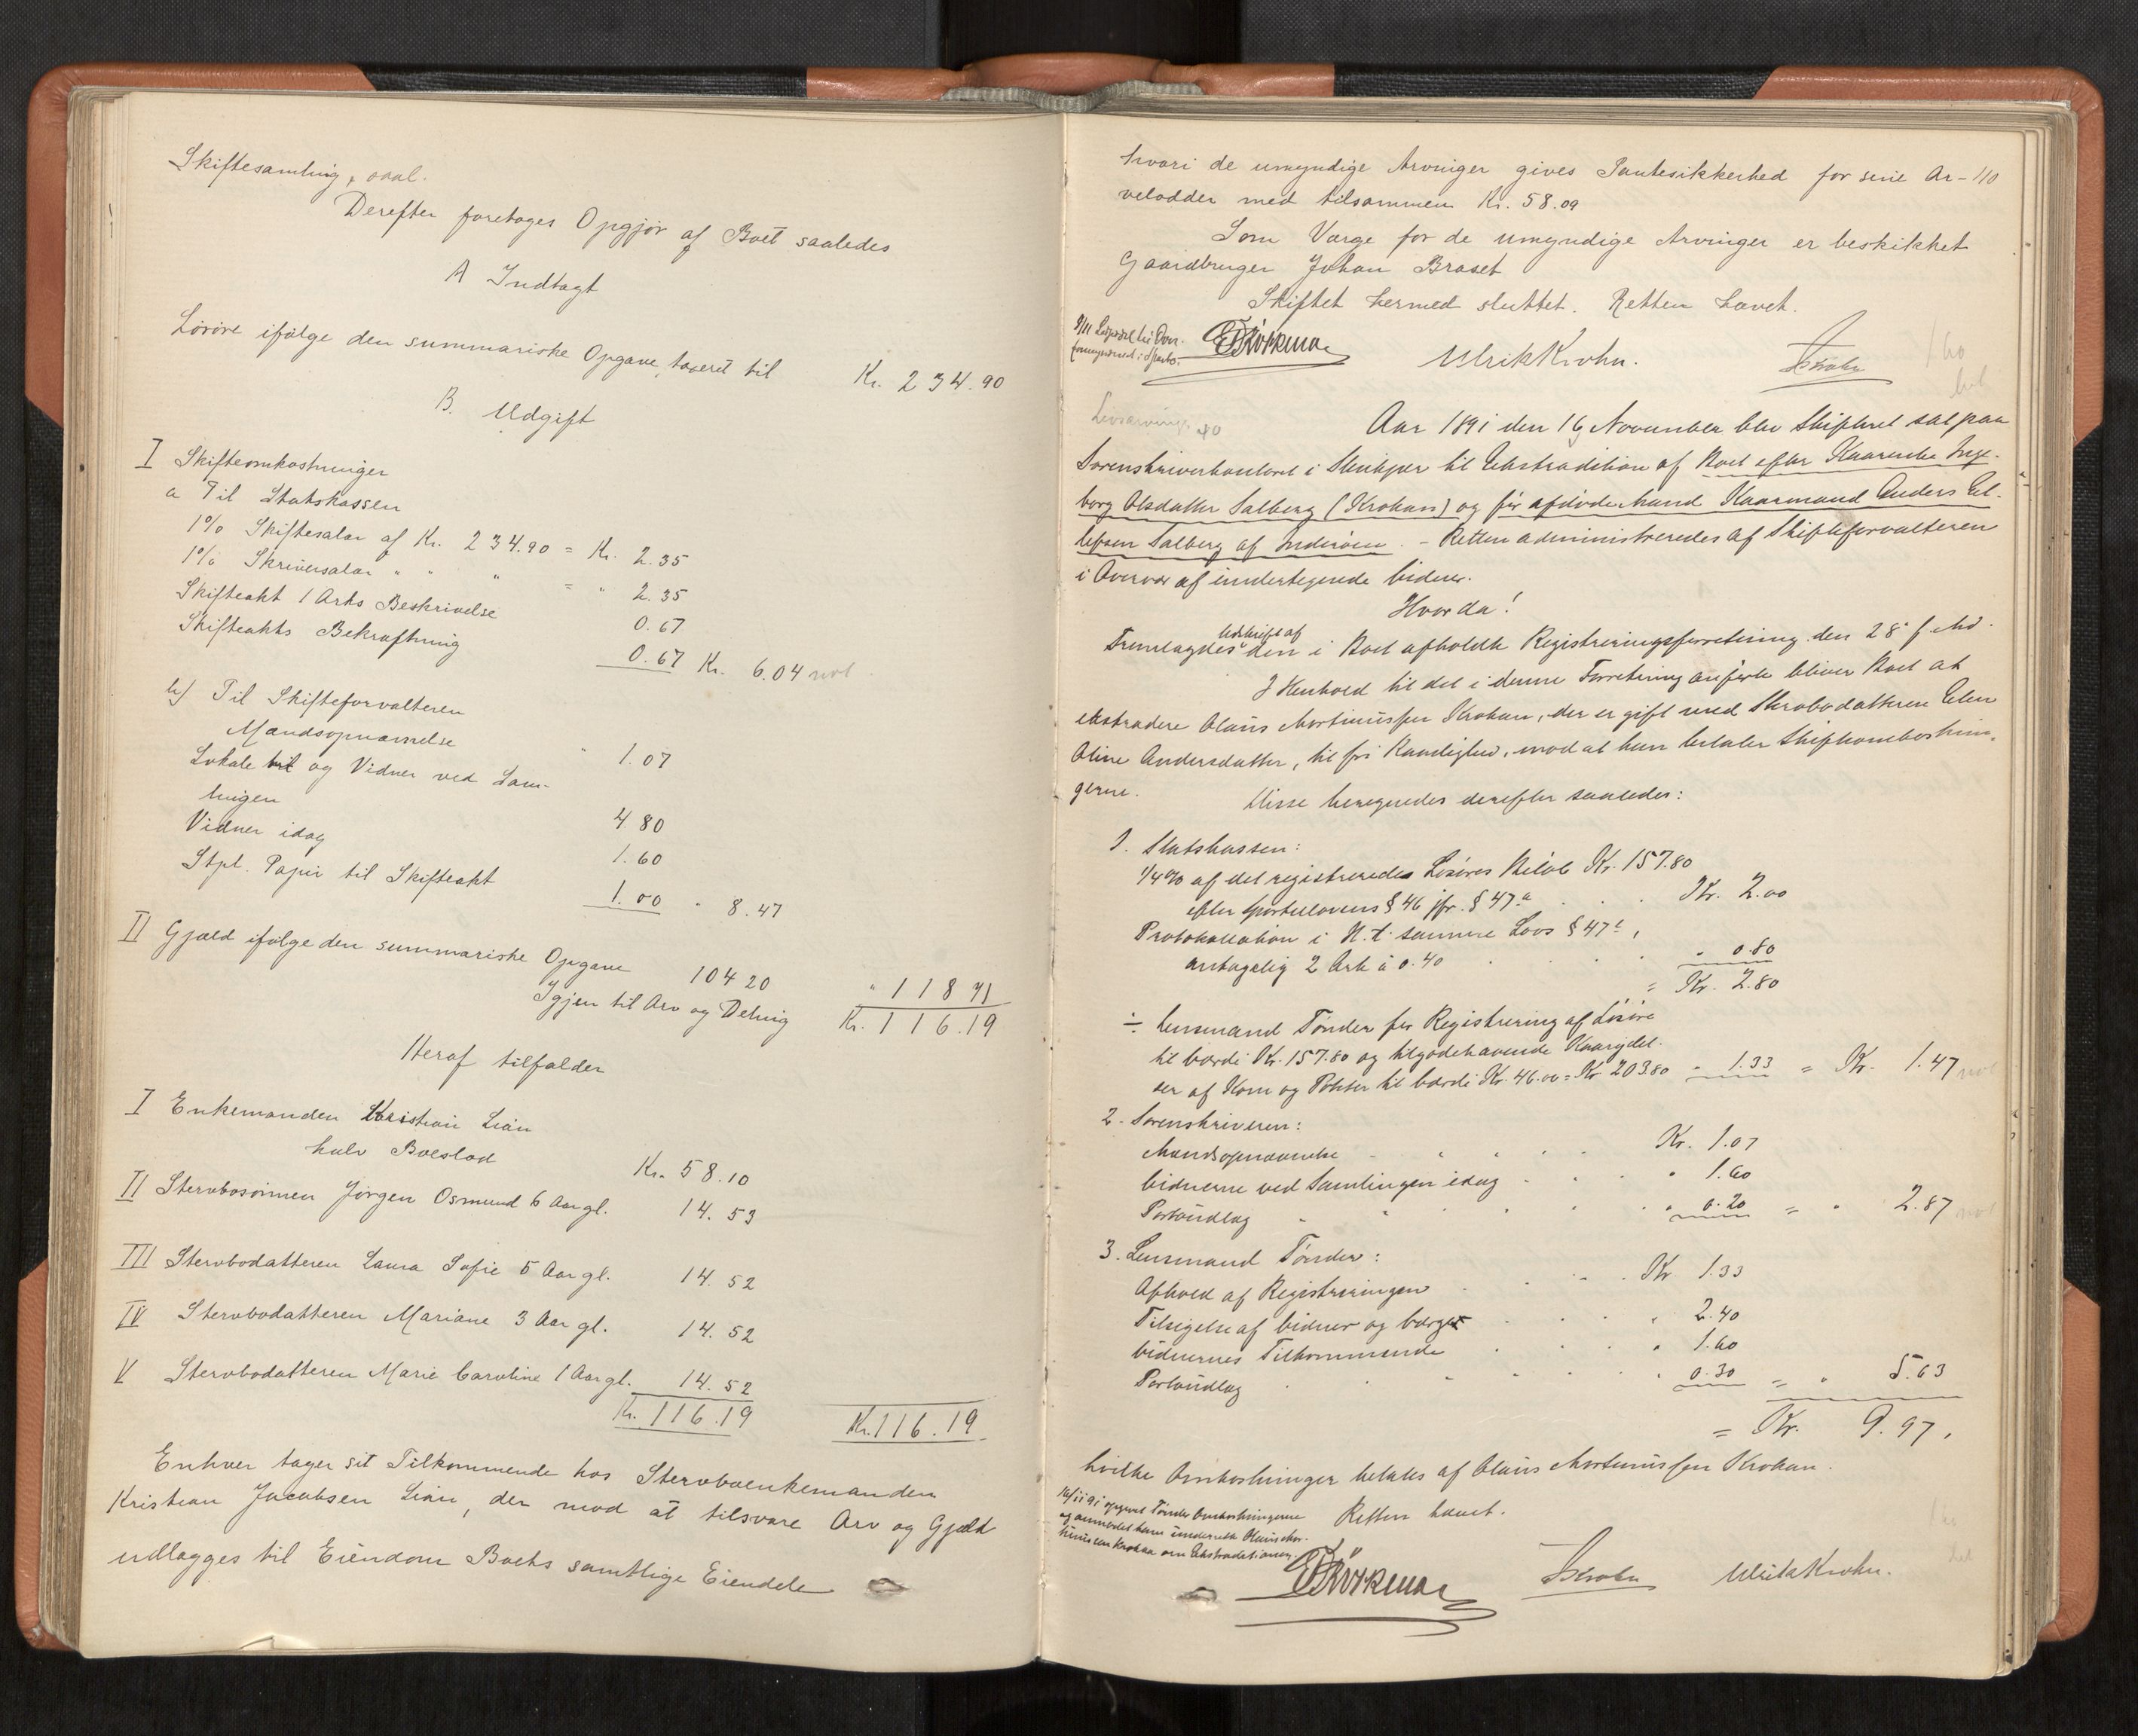 Skiftesamling, saal.
Derefter foretoges Opgjør af Boet saaledes
A Indtægt
Løsøre ifølge den summariske Opgave, taxeret til Kr. 234.90
B. Udgift
I Skifteomkostninger
a Til Statskassen
1% Skiftesalær af Kr. 234.90 = Kr. 2.35
1% Skriversalær " " " = " 2.35
Skifteakt 1 Arks Beskrivelse 0.67
Skifteakts Bekræftning 0.67 Kr. 6.04 not
b) Til Skifteforvalteren
Mandsopnævnelse " 1.07
Lokale og Vidner ved Sam-
lingen 4 80
Vidner idag 1.60
Stpl. Papir til Skifteakt 1.00 " 8.47
II Gjæld ifølge den summariske Opgave 104 20 " 118 71
Igjen til Arv og Deling Kr. 116.19
Heraf tilfalder
I Enkemanden Kristian Lian
halv Boeslod Kr. 58.10
II Stervbosønnen Jørgen Osmund 6 Aar gl. 14.53
III Stervbodatteren Laura Sofie 5 Aar gl. 14.52
IV Stervbodatteren Mariane 3 Aar gl. 14.52
V Stervbodatteren Marie Caroline 1 Aar gl. 14.52
Kr. 116.19 Kr. 116.19
Enhver tager sit Tilkommende hos Stervboenkemanden
Kristian Jacobsen Lian, der mod at tilsvare Arv og Gjæld
udlægges til Eiendom Boets samtlige Eiendele
hvori de umyndige Arvinger gives Pantesikkerhed for sine Ar- 110
velodder med tilsammen Kr. 58.09
Som Værge for de umyndige Arvinger er beskikket
Gaardbruger Johan Braset
Skiftet hermed sluttet. Retten hævet.
Ulrik Krohn.
Aar 1891 den 16 November blev Skifteret sat paa
Sorenskriverkontoret i Stenkjær til Ekstradition af Boet efter Kaarenke Inge-
borg Olsdatter Salberg (Krokan) og før afdøde Mand Kaarmand Anders El-
lefsen Salberg af Inderøen. - Retten administreredes af Skifteforvalteren
i Overvær af undertegnede Vidner.
Hvorda!
Fremlagdes Udskrift af den i Boet afholdte Registreringsforretning den 28 f. Md.
I Henhold til det i denne Forretning anførte bliver Boet at
ekstradere Olaus Mortinussen Krokan, der er gift med Stervbodatteren Elen
Oline Andersdatter, til fri Raadighed, mod at han betaler Skifteomkostnin-
gerne. Disse beregnedes derefter saaledes:
1. Statskassen:
1/4% af det registrerede Løsøres Beløb Kr. 157.80
efter Sportellovens § 46 jfr. § 47 a Kr. 2.00
Protokollation i H. t. samme Lovs § 47 c,
antagelig 2 Ark à 0.40 " 0.80
= Kr. 2.80
÷ Lensmand Tønder for Registrering af Løsøre
til Værdi Kr. 157.80 og tilgodehavende Kaarydel-
ser af Korn og Poteter til Værdi Kr. 46.00 = Kr. 203.80 " 1.33 = Kr. 1.47 not
2. Sorenskriveren:
Mandsopnævnelse Kr. 1.07
Vidnerne ved Samlingen idag " 1.60
Portoudlæg " 0.20 = " 2.87 not
3. Lensmand Tønder:
Afhold af Registreringen Kr 1.33
Tilsigelse af Vidner og Værger " 2.40
Vidnernes Tilkommende " 1.60
Portoudlæg " 0.30 = " 5.63
= Kr. 9.97,
hvilke Omkostninger betales af Olaus Mortinussen Krokan.
Retten hævet.
16/11 91 opgivet Tønder Omkostningerne
og anmodet ham underrette Olaus Mor-
tinussen Krokan om Ekstraditionen.
Ulrik Krohn.